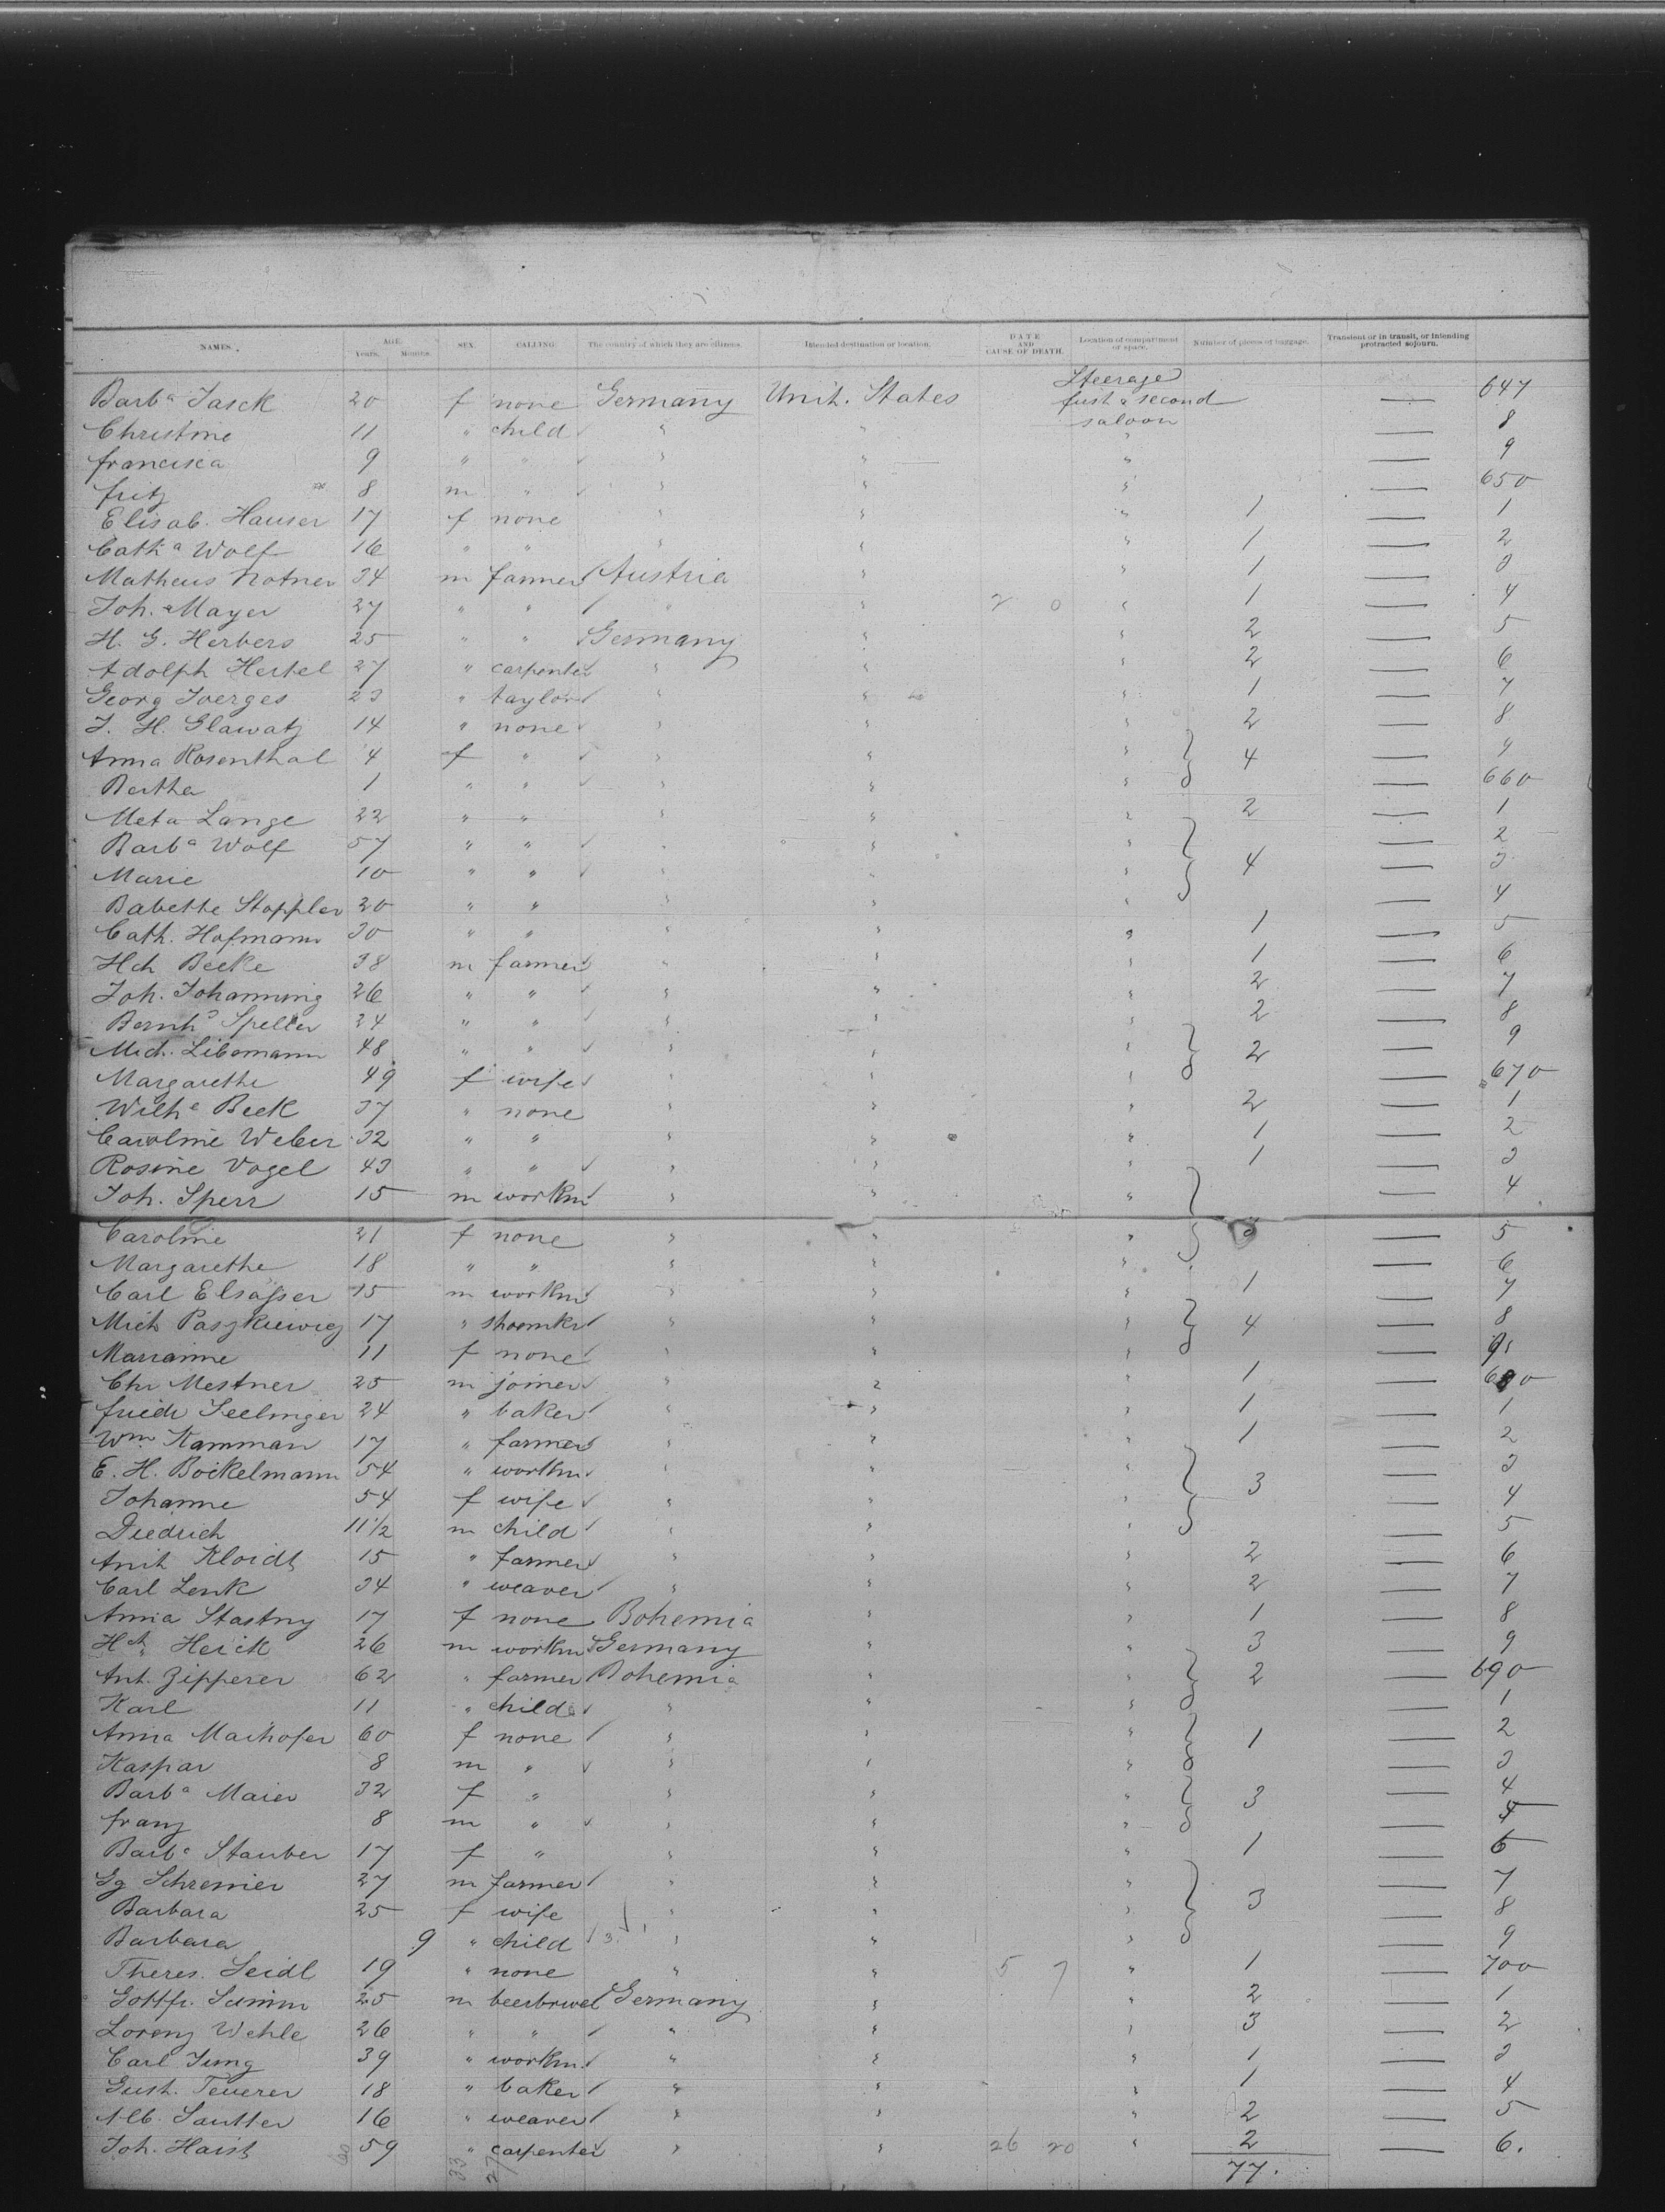 NAMES. AGE. Years. Months. SEX. CALLING. The country of which they are citizens. Intended destination or location. DATE AND CAUSE OF DEATH. Location of compartment or space. Number of pieces of baggage. Transient or in transit, or intending protracted sojourn.
Barba Jasck 20 f none Germany Unit. States Steerage fust & second saloon — 647
Christine 11 " child " " " — 8
francisca 9 " " " " " — 9
fritz 8 m " " " " — 650
Elisab. Hauser 17 f none " " " 1 — 1
Catha Wolf 16 " " " " " 1 — 2
Matheus Notner 34 m farmer Austria " " 1 — 3
Joh. Mayer 27 " " " " 2 0 " 1 — 4
H. G. Herbers 25 " " Germany " " 2 — 5
Adolph Hertel 27 " carpenter " " " 2 — 6
Georg Joerges 23 " taylor " " " 1 — 7
J. H. Glawatz 14 " none " " " 2 — 8
Anna Rosenthal 4 f " " " " 4 — 9
Bertha 1 " " " " " — 660
Meta Lange 22 " " " " " 2 — 1
Barba Wolf 57 " " " " " 4 — 2
Marie 10 " " " " " — 3
Babette Stoppler 20 " " " " " — 4
Cath. Hofmann 30 " " " " " 1 — 5
Hch Beeke 38 m farmer " " " 1 — 6
Joh. Johanning 26 " " " " " 2 — 7
Bernhd Speller 24 " " " " " 2 — 8
Mich. Libsmann 48 " " " " " 2 — 9
Margarethe 49 f wife " " " — 670
Wilhe Beek 37 " none " " " 2 — 1
Caroline Weber 32 " " " " " 1 — 2
Rosine Vogel 43 " " " " " 1 — 3
Joh. Sperr 15 m workm " " " — 4
Caroline 21 f none " " " 3 — 5
Margarethe 18 " " " " " — 6
Carl Elsasser 15 m workm " " " 1 — 7
Mich Paszkiewicz 17 " shoemkr " " " 4 — 8
Marianne 11 f none " " " — 9
Chr Mestner 25 m joiner " " " 1 — 680
friedr Seelinger 24 " baker " " " 1 — 1
Wm Kamman 17 " farmer " " " 1 — 2
E. H. Bockelmann 54 " workm " " " 3 — 3
Johanne 54 f wife " " " — 4
Diedrich 11½ m child " " " — 5
Anth Kloidt 15 " farmer " " " 2 — 6
Carl Lenk 34 " weaver " " " 2 — 7
Anna Stastny 17 f none Bohemia " " 1 — 8
Hch Heick 26 m workm Germany " " 3 — 9
Ant. Zipperer 62 " farmer Bohemia " " 2 — 690
Karl 11 " child " " " — 1
Anna Maihofer 60 f none " " " 1 — 2
Kaspar 8 m " " " " — 3
Barba Maier 32 f " " " " 3 — 4
franz 8 m " " " " — 5
Barba Stauber 17 f " " " " 1 — 6
Gg Schremer 27 m farmer " " " 3 — 7
Barbara 25 f wife " " " — 8
Barbara 9 " child 3 " " " — 9
Theres. Seidl 19 " none " " 5 7 " 1 — 700
Gottfr. Samm 25 m beerbrwer Germany " " 2 — 1
Lorenz Wehle 26 " " " " " 3 — 2
Carl Jung 39 " workm. " " " 1 — 3
Gust. Teuerer 18 " baker " " " 1 — 4
Alb. Sautter 16 " weaver " " " 2 — 5
Joh. Haist 59 " carpenter " " 26 20 " 2 — 6.
60 33 27 77.